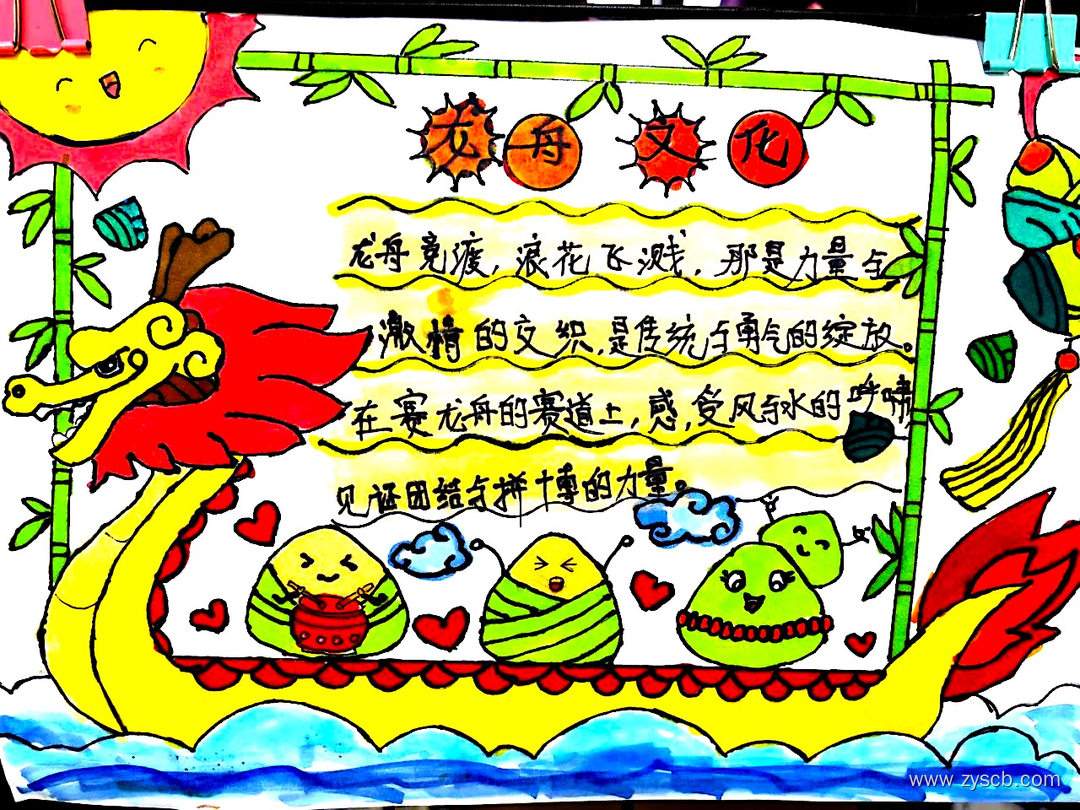 龙舟文化
龙舟竞渡,浪花飞溅,那是力量与
激情的交织,是传统与勇气的绽放。
在赛龙舟的赛道上,感,受风与水的呼啸,
见证团结与拼搏的力量。
www.zyscb.com